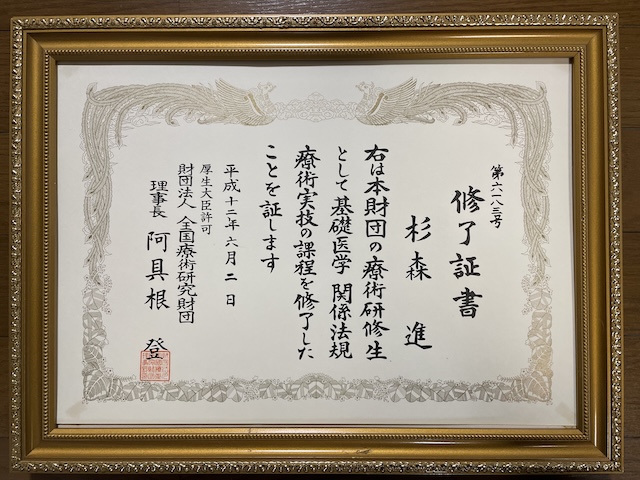 第六一八三号
修了証書
杉森 進
右は本財団の療術研修生
として基礎医学 関係法規
療術実技の課程を修了した
ことを証します
平成十二年六月二日
厚生大臣許可
財団法人 全国療術研究財団
理事長 阿具根 登